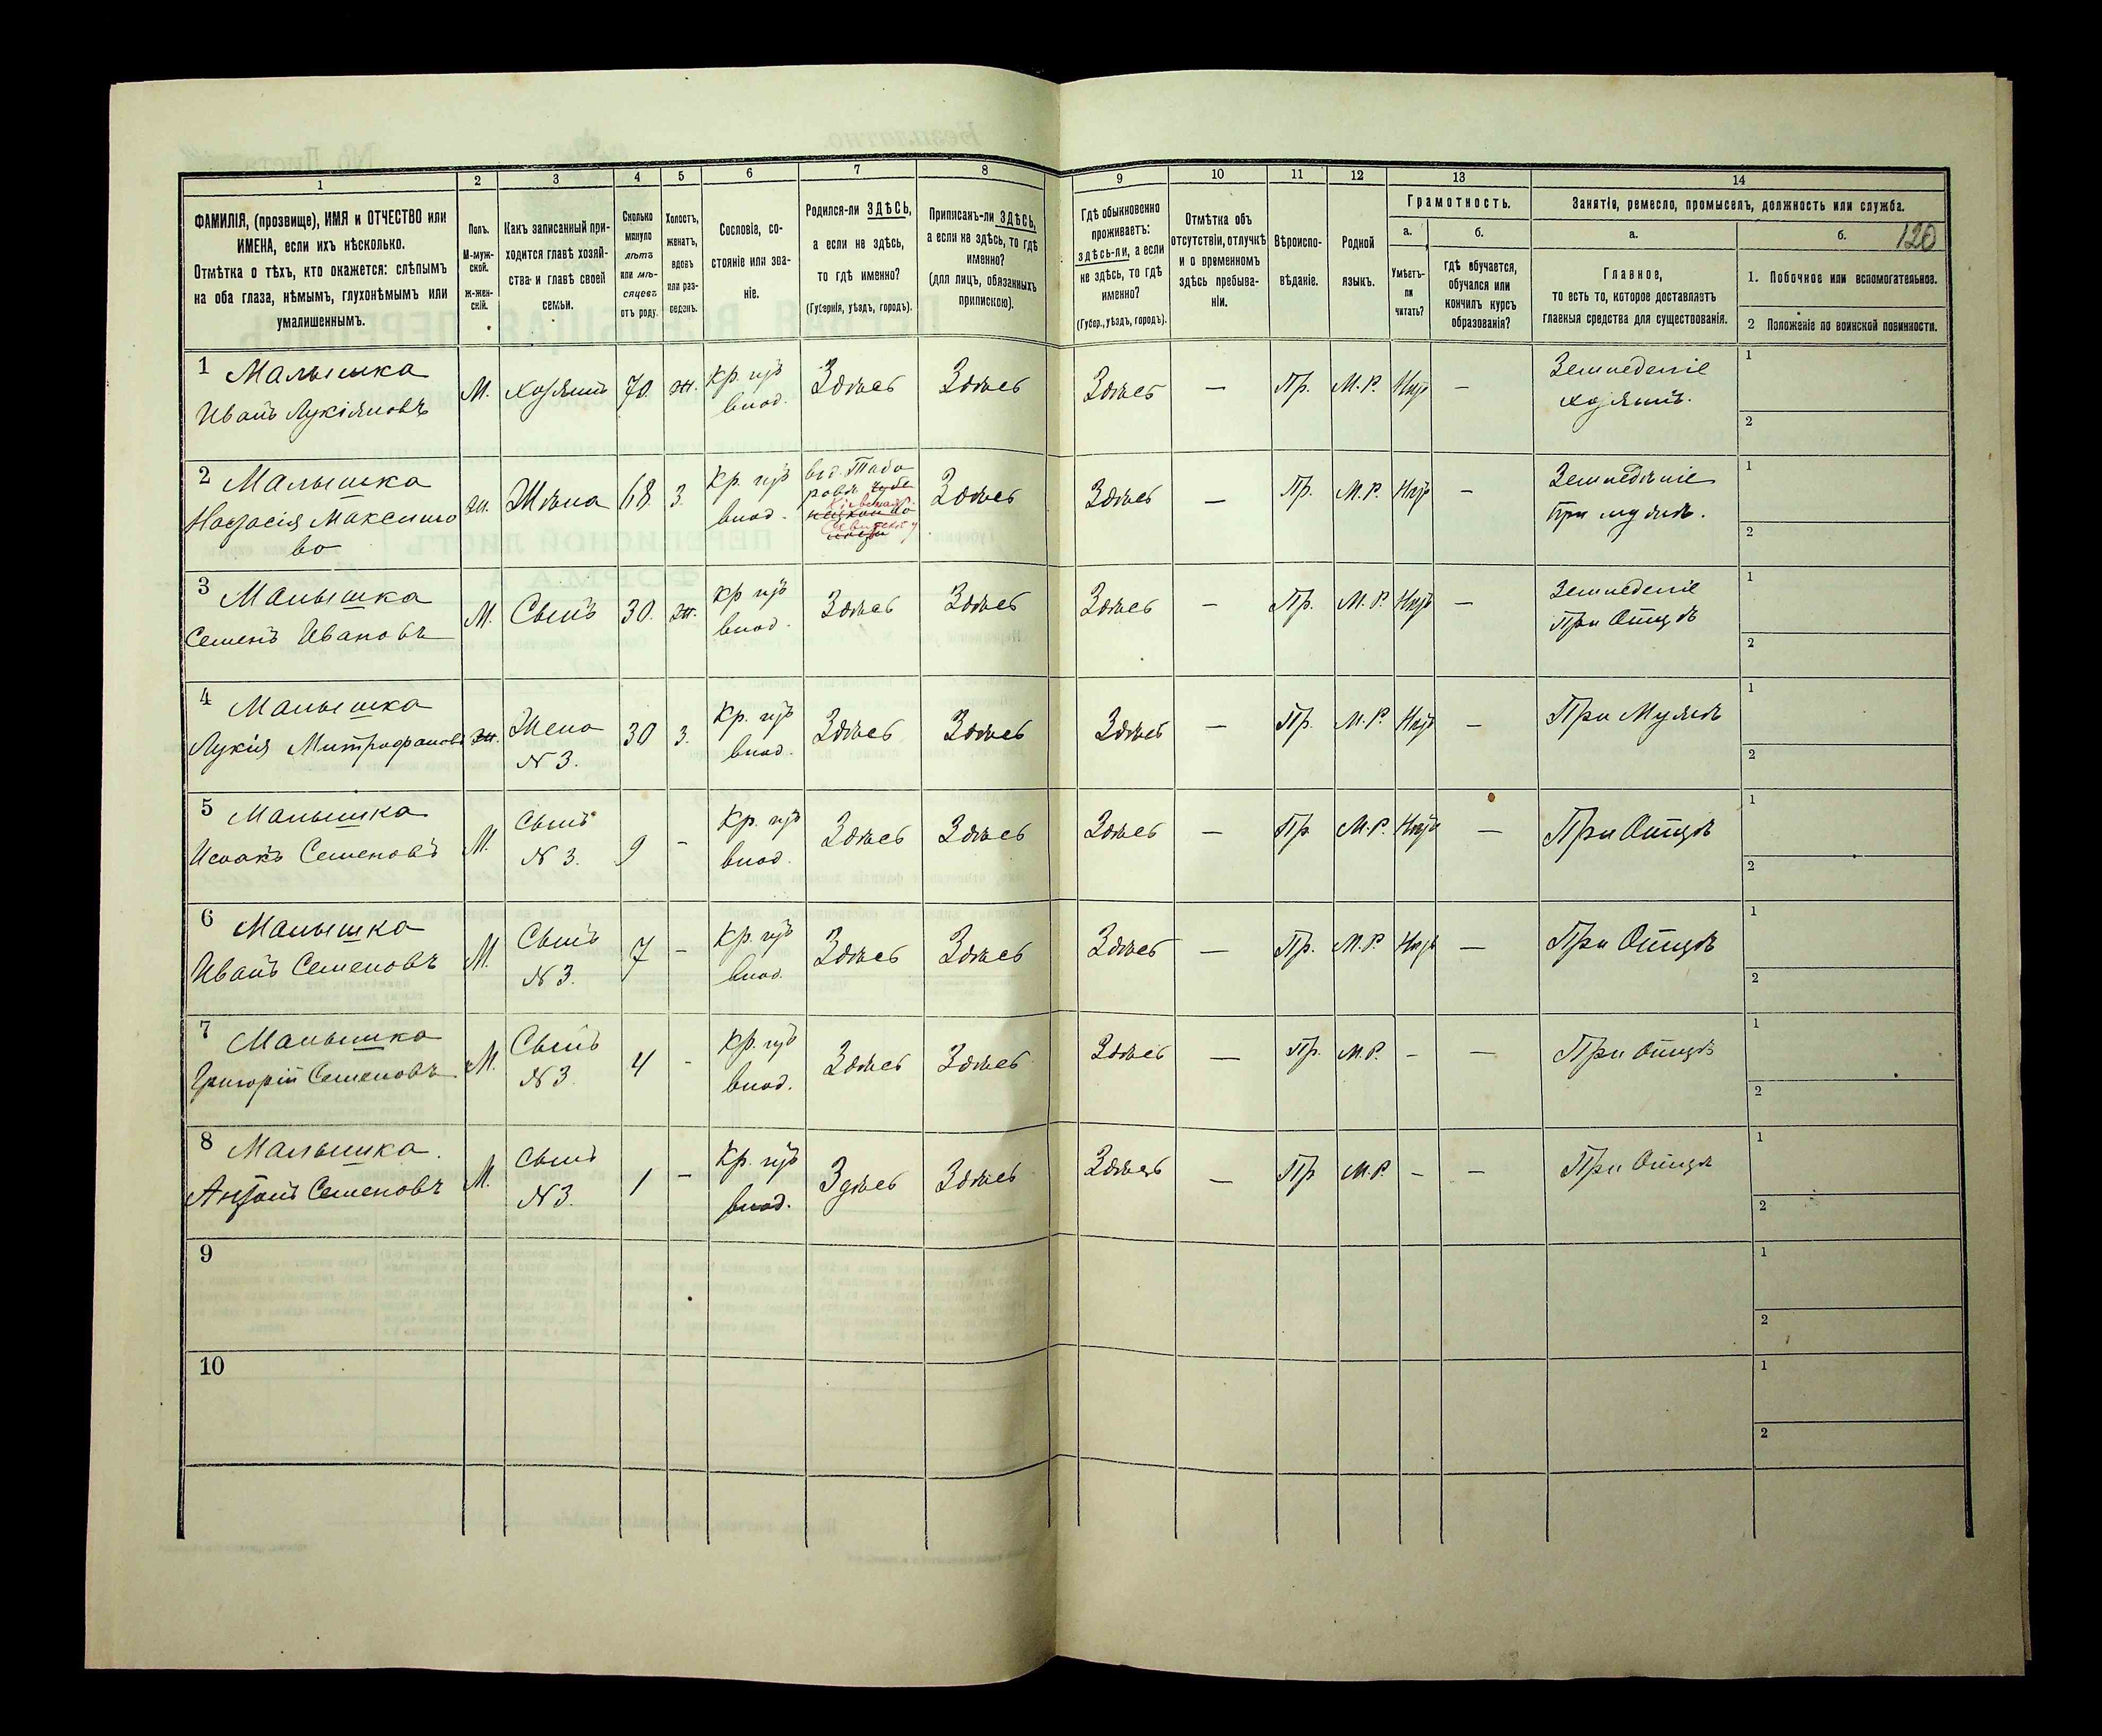 1
2
3
4
5
6
7
8
9
10
11
12
13
14
ФАМИЛІЯ, (прозвище), ИМЯ и ОТЧЕСТВО или
ИМЕНА, если ихъ нѣсколько.
Отмѣтка о тѣхъ, кто окажется: слѣпымъ
на оба глаза, нѣмымъ, глухонѣмымъ или
умалишеннымъ.
Полъ.
М-муж-
ской.
ж-жен-
скій.
Какъ записанный при-
ходится главѣ хозяй-
ства и главѣ своей
семьи.
Сколько
минуло
лѣтъ
или мѣ-
сяцевъ
отъ роду.
Холостъ,
женатъ,
вдовъ
или раз-
веденъ.
Сословіе, со-
стояніе или зва-
ніе.
Родился-ли ЗДѢСЬ,
а если не здѣсь,
то гдѣ именно?
(Губернія, уѣздъ, городъ).
Приписанъ-ли ЗДѢСЬ,
а если не здѣсь, то гдѣ
именно?
(для лицъ, обязанныхъ
припискою).
Гдѣ обыкновенно
проживаетъ:
здѣсь-ли, а если
не здѣсь, то гдѣ
именно?
(Губер., уѣздъ, городъ).
Отмѣтка объ
отсутствіи, отлучкѣ
и о временномъ
здѣсь пребыва-
ніи.
Вѣроиспо-
вѣданіе.
Родной
языкъ.
Грамотность.
а.
Умѣетъ-
ли
читать?
б.
гдѣ обучается,
обучался или
кончилъ курсъ
образованія?
Занятіе, ремесло, промыселъ, должность или служба.
а.
Главное,
то есть то, которое доставляетъ
главныя средства для существованія.
б.
120
1. Побочное или вспомогательное.
2 Положеніе по воинской повинности.
1 Малышка
Иванъ Лукіяновъ
М. хозяинъ 70. Ж. Кр. изъ
влад. Здѣсь Здѣсь Здѣсь — Пр. М.Р. Нѣтъ — Земледеліе
хозяинъ.
1
2
2 Малышка
Настасія Максимо
ва
Ж. Жѣна 68 З. Кр. изъ
влад. Здѣсь Здѣсь — Пр. М.Р. Нѣтъ — Земледѣліе
При мужѣ.
1
2
3 Малышка
Семенъ Ивановъ
М. Сынъ 30. Ж. кр изъ
влад. Здѣсь Здѣсь Здѣсь — Пр. М.Р. Нѣтъ — Земледеліе
При Отцѣ
1
2
4 Малышка
Лукія Митрофанова
Ж. Жена
N 3. 30 З. Кр. изъ
влад. Здѣсь Здѣсь Здѣсь — Пр. М.Р. Нѣтъ — При Мужѣ
1
2
5 Малышка
Исакъ Семеновъ
М. Сынъ
N 3. 9 - Кр. изъ
влад. Здѣсь Здѣсь Здѣсь — Пр. М.Р. Нѣтъ — При Отцѣ
1
2
6 Малышка
Иванъ Семеновъ
М. Сынъ
N 3. 7 - Кр. изъ
влад. Здѣсь Здѣсь Здѣсь — Пр. М.Р. Нѣтъ — При Отцѣ
1
2
7 Малышка
Григорій Семеновъ
М. Сынъ
N 3 4 - Кр. изъ
влад. Здѣсь Здѣсь Здѣсь — Пр. М.Р. - — При Отцѣ
1
2
8 Малышка.
Антонъ Семеновъ
М. Сынъ
N 3. 1 - Кр. изъ
влад. Здѣсь Здѣсь Здѣсь — Пр М.Р. - — При Отцѣ
1
2
9
1
2
10
1
2